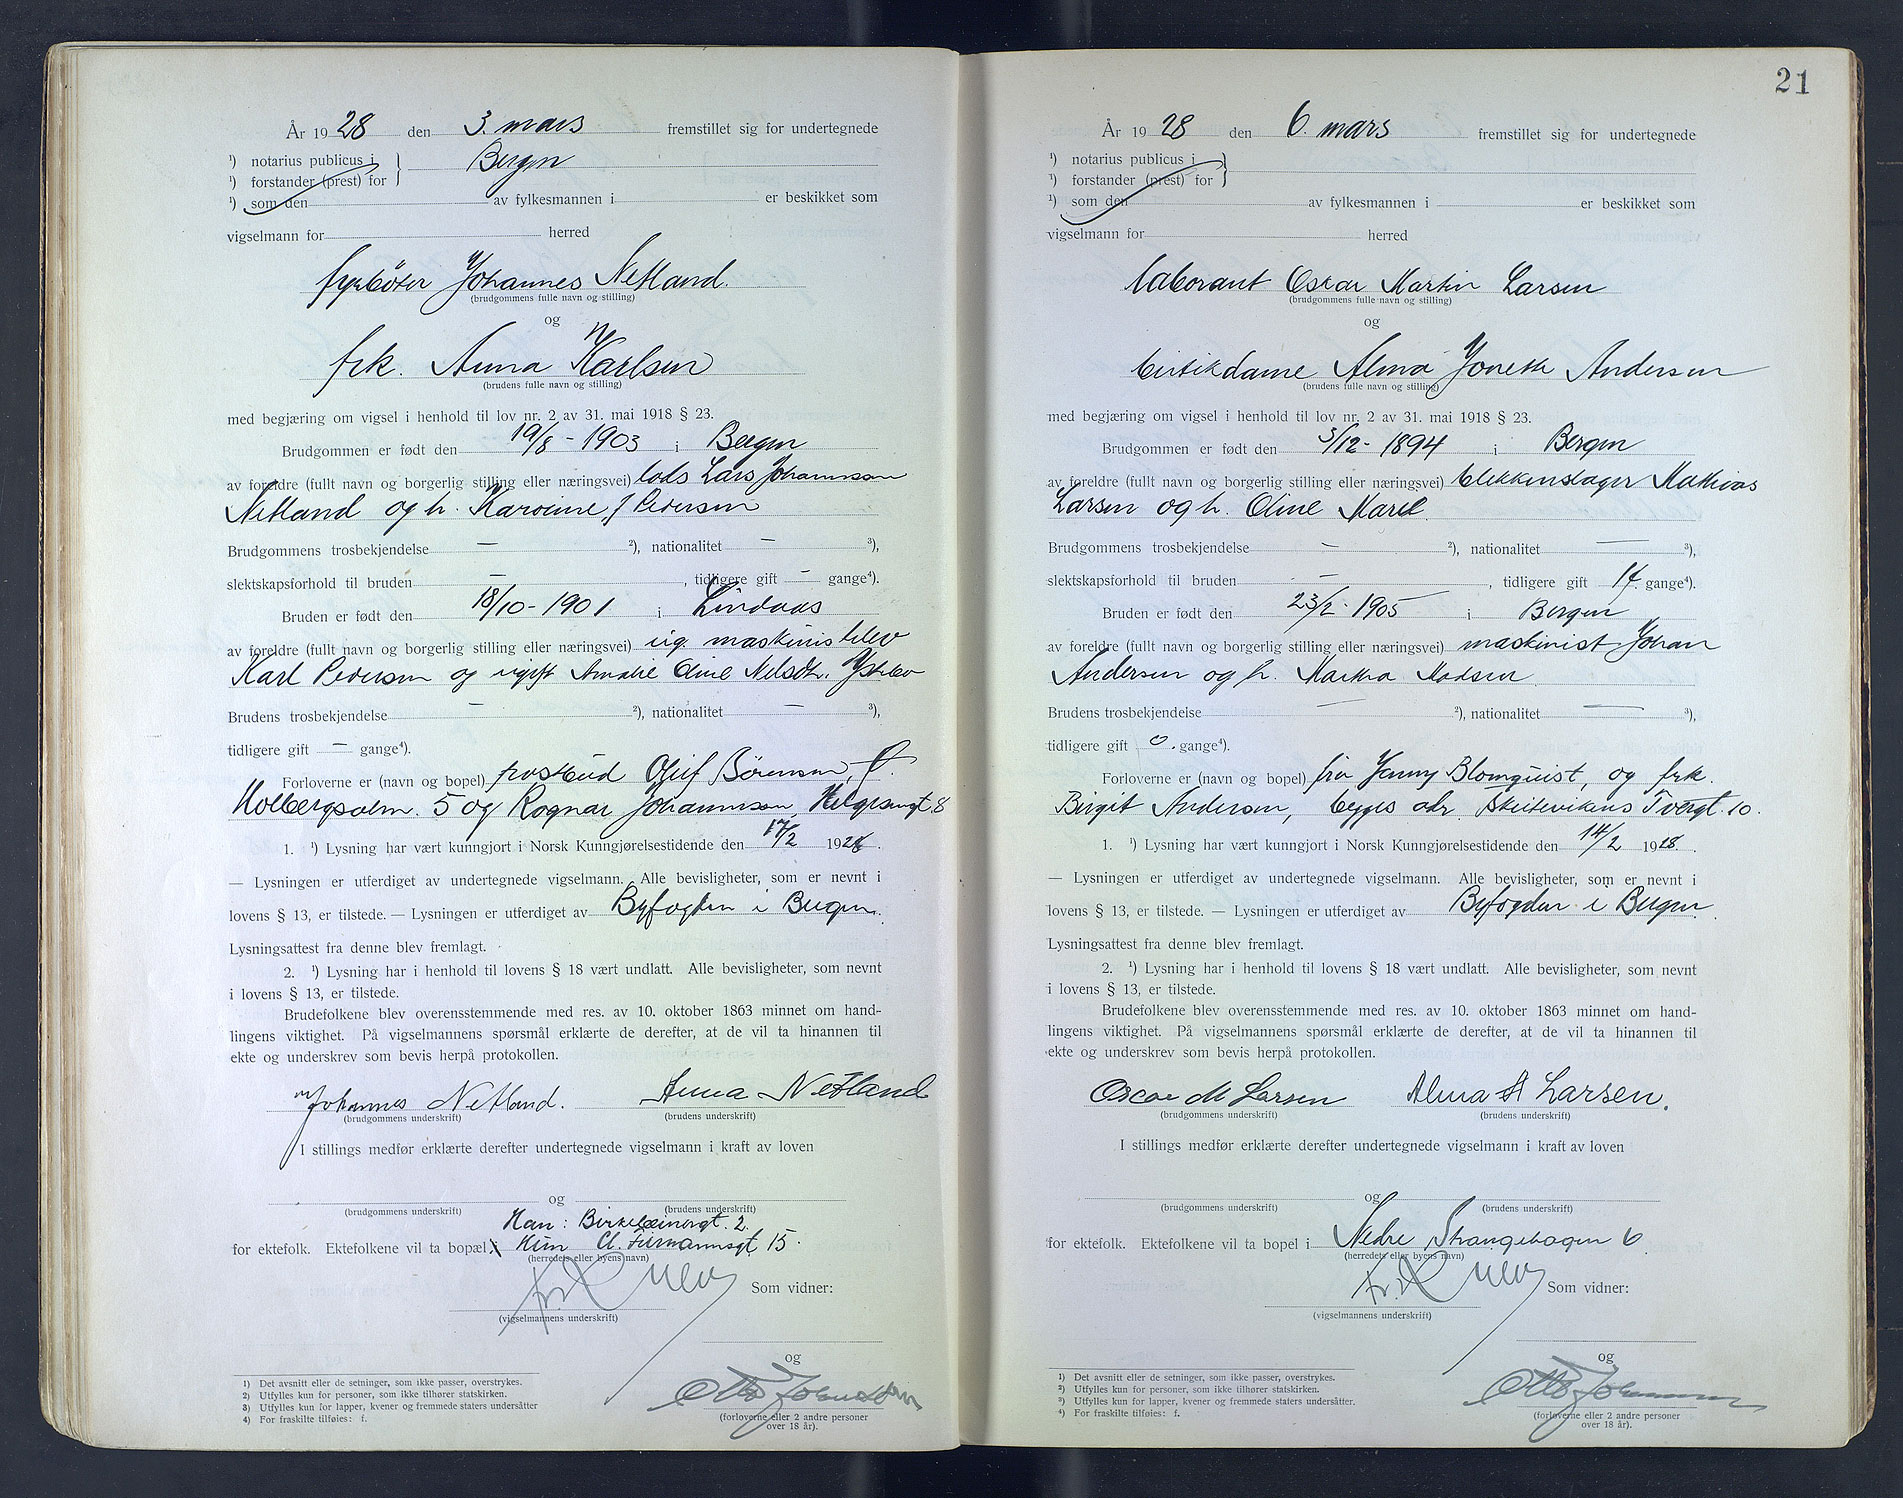 År 1928 den 3. mars fremstillet sig for undertegnede
¹) notarius publicus i
¹) forstander (prest) for } Bergen
¹) som den av fylkesmannen i er beskikket som
vigselmann for herred
fyrbøter Johannes Netland.
(brudgommens fulle navn og stilling)
og
frk. Anna N Karlsen
(brudens fulle navn og stilling)
med begjæring om vigsel i henhold til lov nr. 2 av 31. mai 1918 § 23.
Brudgommen er født den 19/8 - 1903 i Bergen
av foreldre (fullt navn og borgerlig stilling eller næringsvei) lods Lars Johannesen
Netland og h. Karoline f Pedersen
Brudgommens trosbekjendelse — ²), nationalitet — ³),
slektskapsforhold til bruden — , tidligere gift — gange⁴).
Bruden er født den 18/10 - 1901 i Lindaas
av foreldre (fullt navn og borgerlig stilling eller næringsvei) ug. maskinistelev
Karl Pedersen og ugift Amalie Oline Nelsdtr.
Brudens trosbekjendelse — ²), nationalitet — ³),
tidligere gift — gange⁴).
Forloverne er (navn og bopel) postbud Oluf Sørensen,
Holbergsalm. 5 og Ragnar Johannesen, Helgesensgt. 8
1. ¹) Lysning har vært kunngjort i Norsk Kunngjørelsestidende den 17/2 1928.
— Lysningen er utferdiget av undertegnede vigselmann. Alle bevisligheter, som er nevnt i
lovens § 13, er tilstede. — Lysningen er utferdiget av Byfogden i Bergen.
Lysningsattest fra denne blev fremlagt.
2. ¹) Lysning har i henhold til lovens § 18 vært undlatt. Alle bevisligheter, som nevnt
i lovens § 13, er tilstede.
Brudefolkene blev overensstemmende med res. av 10. oktober 1863 minnet om hand-
lingens viktighet. På vigselmannens spørsmål erklærte de derefter, at de vil ta hinannen til
ekte og underskrev som bevis herpå protokollen.
Johannes Netland. Anna Netland
(brudgommens underskrift) (brudens underskrift)
I stillings medfør erklærte derefter undertegnede vigselmann i kraft av loven
og
(brudgommens underskrift) (brudens underskrift)
Han: Birkebeinergt. 2.
for ektefolk. Ektefolkene vil ta bopæl i Hun Cl. 15.
(herredets eller byens navn)
Som vidner:
(vigselmannens underskrift)
og
¹) Det avsnitt eller de setninger, som ikke passer, overstrykes.
²) Utfylles kun for personer, som ikke tilhører statskirken.
³) Utfylles kun for lapper, kvener og fremmede staters undersåtter
⁴) For fraskilte tilføies: f.
Otto Johannessen
(forloverne eller 2 andre personer
over 18 år).
21
År 1928 den 6. mars fremstillet sig for undertegnede
¹) notarius publicus i
¹) forstander (prest) for }
¹) som den av fylkesmannen i er beskikket som
vigselmann for herred
laborant Oscar Martin Larsen
(brudgommens fulle navn og stilling)
og
butikdame Alma Andersen
(brudens fulle navn og stilling)
med begjæring om vigsel i henhold til lov nr. 2 av 31. mai 1918 § 23.
Brudgommen er født den 3/12 - 1894 i Bergen
av foreldre (fullt navn og borgerlig stilling eller næringsvei) blikkenslager Mathias
Larsen og h. Oline Marie.
Brudgommens trosbekjendelse — ²), nationalitet — ³),
slektskapsforhold til bruden — , tidligere gift 1 f. gange⁴).
Bruden er født den 23/2 - 1905 i Bergen
av foreldre (fullt navn og borgerlig stilling eller næringsvei) maskinist Johan
Andersen og h. Martha Madsen
Brudens trosbekjendelse — ²), nationalitet — ³),
tidligere gift 0. gange⁴).
Forloverne er (navn og bopel) fru Jenny Blomquist, og frk.
Birgit Andersen, begges adr. Skutevikens Tvergt. 10.
1. ¹) Lysning har vært kunngjort i Norsk Kunngjørelsestidende den 14/2 1928.
— Lysningen er utferdiget av undertegnede vigselmann. Alle bevisligheter, som er nevnt i
lovens § 13, er tilstede. — Lysningen er utferdiget av Byfogden i Bergen.
Lysningsattest fra denne blev fremlagt.
2. ¹) Lysning har i henhold til lovens § 18 vært undlatt. Alle bevisligheter, som nevnt
i lovens § 13, er tilstede.
Brudefolkene blev overensstemmende med res. av 10. oktober 1863 minnet om hand-
lingens viktighet. På vigselmannens spørsmål erklærte de derefter, at de vil ta hinannen til
ekte og underskrev som bevis herpå protokollen.
Oscar M Larsen Alma Larsen.
(brudgommens underskrift) (brudens underskrift)
I stillings medfør erklærte derefter undertegnede vigselmann i kraft av loven
og
(brudgommens underskrift) (brudens underskrift)
for ektefolk. Ektefolkene vil ta bopel i Nedre Strangehagen 6
(herredets eller byens navn)
Som vidner:
(vigselmannens underskrift)
og
¹) Det avsnitt eller de setninger, som ikke passer, overstrykes.
²) Utfylles kun for personer, som ikke tilhører statskirken.
³) Utfylles kun for lapper, kvener og fremmede staters undersåtter.
⁴) For fraskilte tilføies: f.
Otto Johannessen
(forloverne eller 2 andre personer
over 18 år).